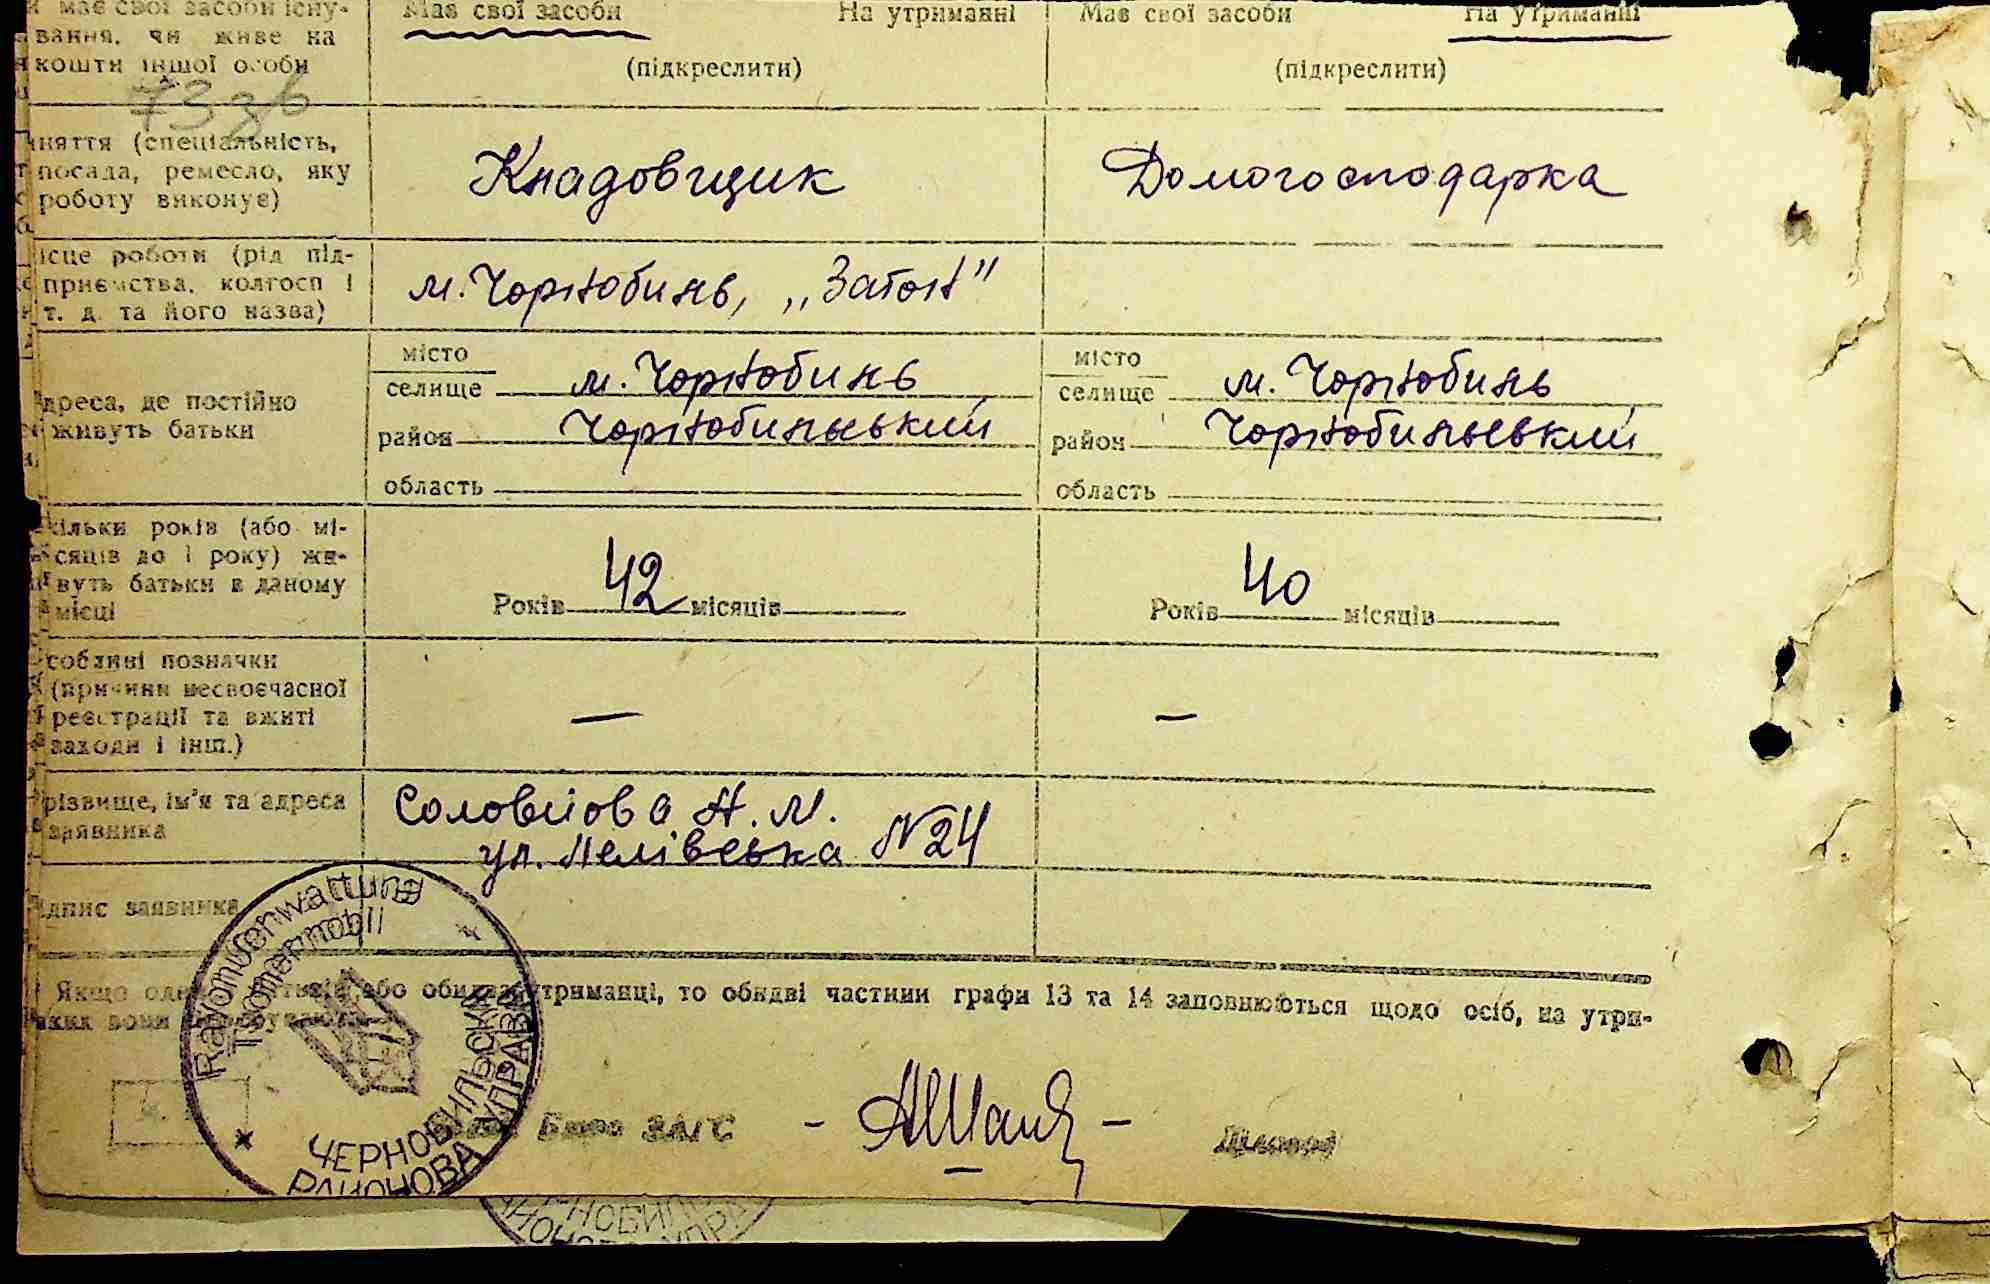 має свої засоби існу-
вання, чи живе на
кошти іншої особи
Має свої засоби На утриманні
(підкреслити)
Має свої засоби На утриманні
(підкреслити)
7336
няття (спеціальність,
посада, ремесло, яку
роботу виконує)
Кладовщик
Домогосподарка
ісце роботи (рід під-
приємства, колгосп і
т. д. та його назва)
м. Чорнобиль, „Затон"
дреса, де постійно
живуть батьки
місто
селище м. Чорнобиль
район Чорнобильський
область
місто
селище м. Чорнобиль
район Чорнобильський
область
кільки років (або мі-
сяців до 1 року) жи-
вуть батьки в даному
місці
Років 42 місяців
Років 40 місяців
собливі позначки
(причини несвоєчасної
реєстрації та вжиті
заходи і інш.)
—
—
різвище, ім'я та адреса
заявника
Соловйова Н. М.
ул. Лелівська №24
ідпис заявника
Якщо один батьків або обидва утриманці, то обидві частини графи 13 та 14 заповнюються щодо осіб, на утри-
яких вони
Rayonuferwaltung
Tschernobil
ЧЕРНОБИЛЬСКА
РАЙОНОВА УПРАВА
Бюро ЗАГС